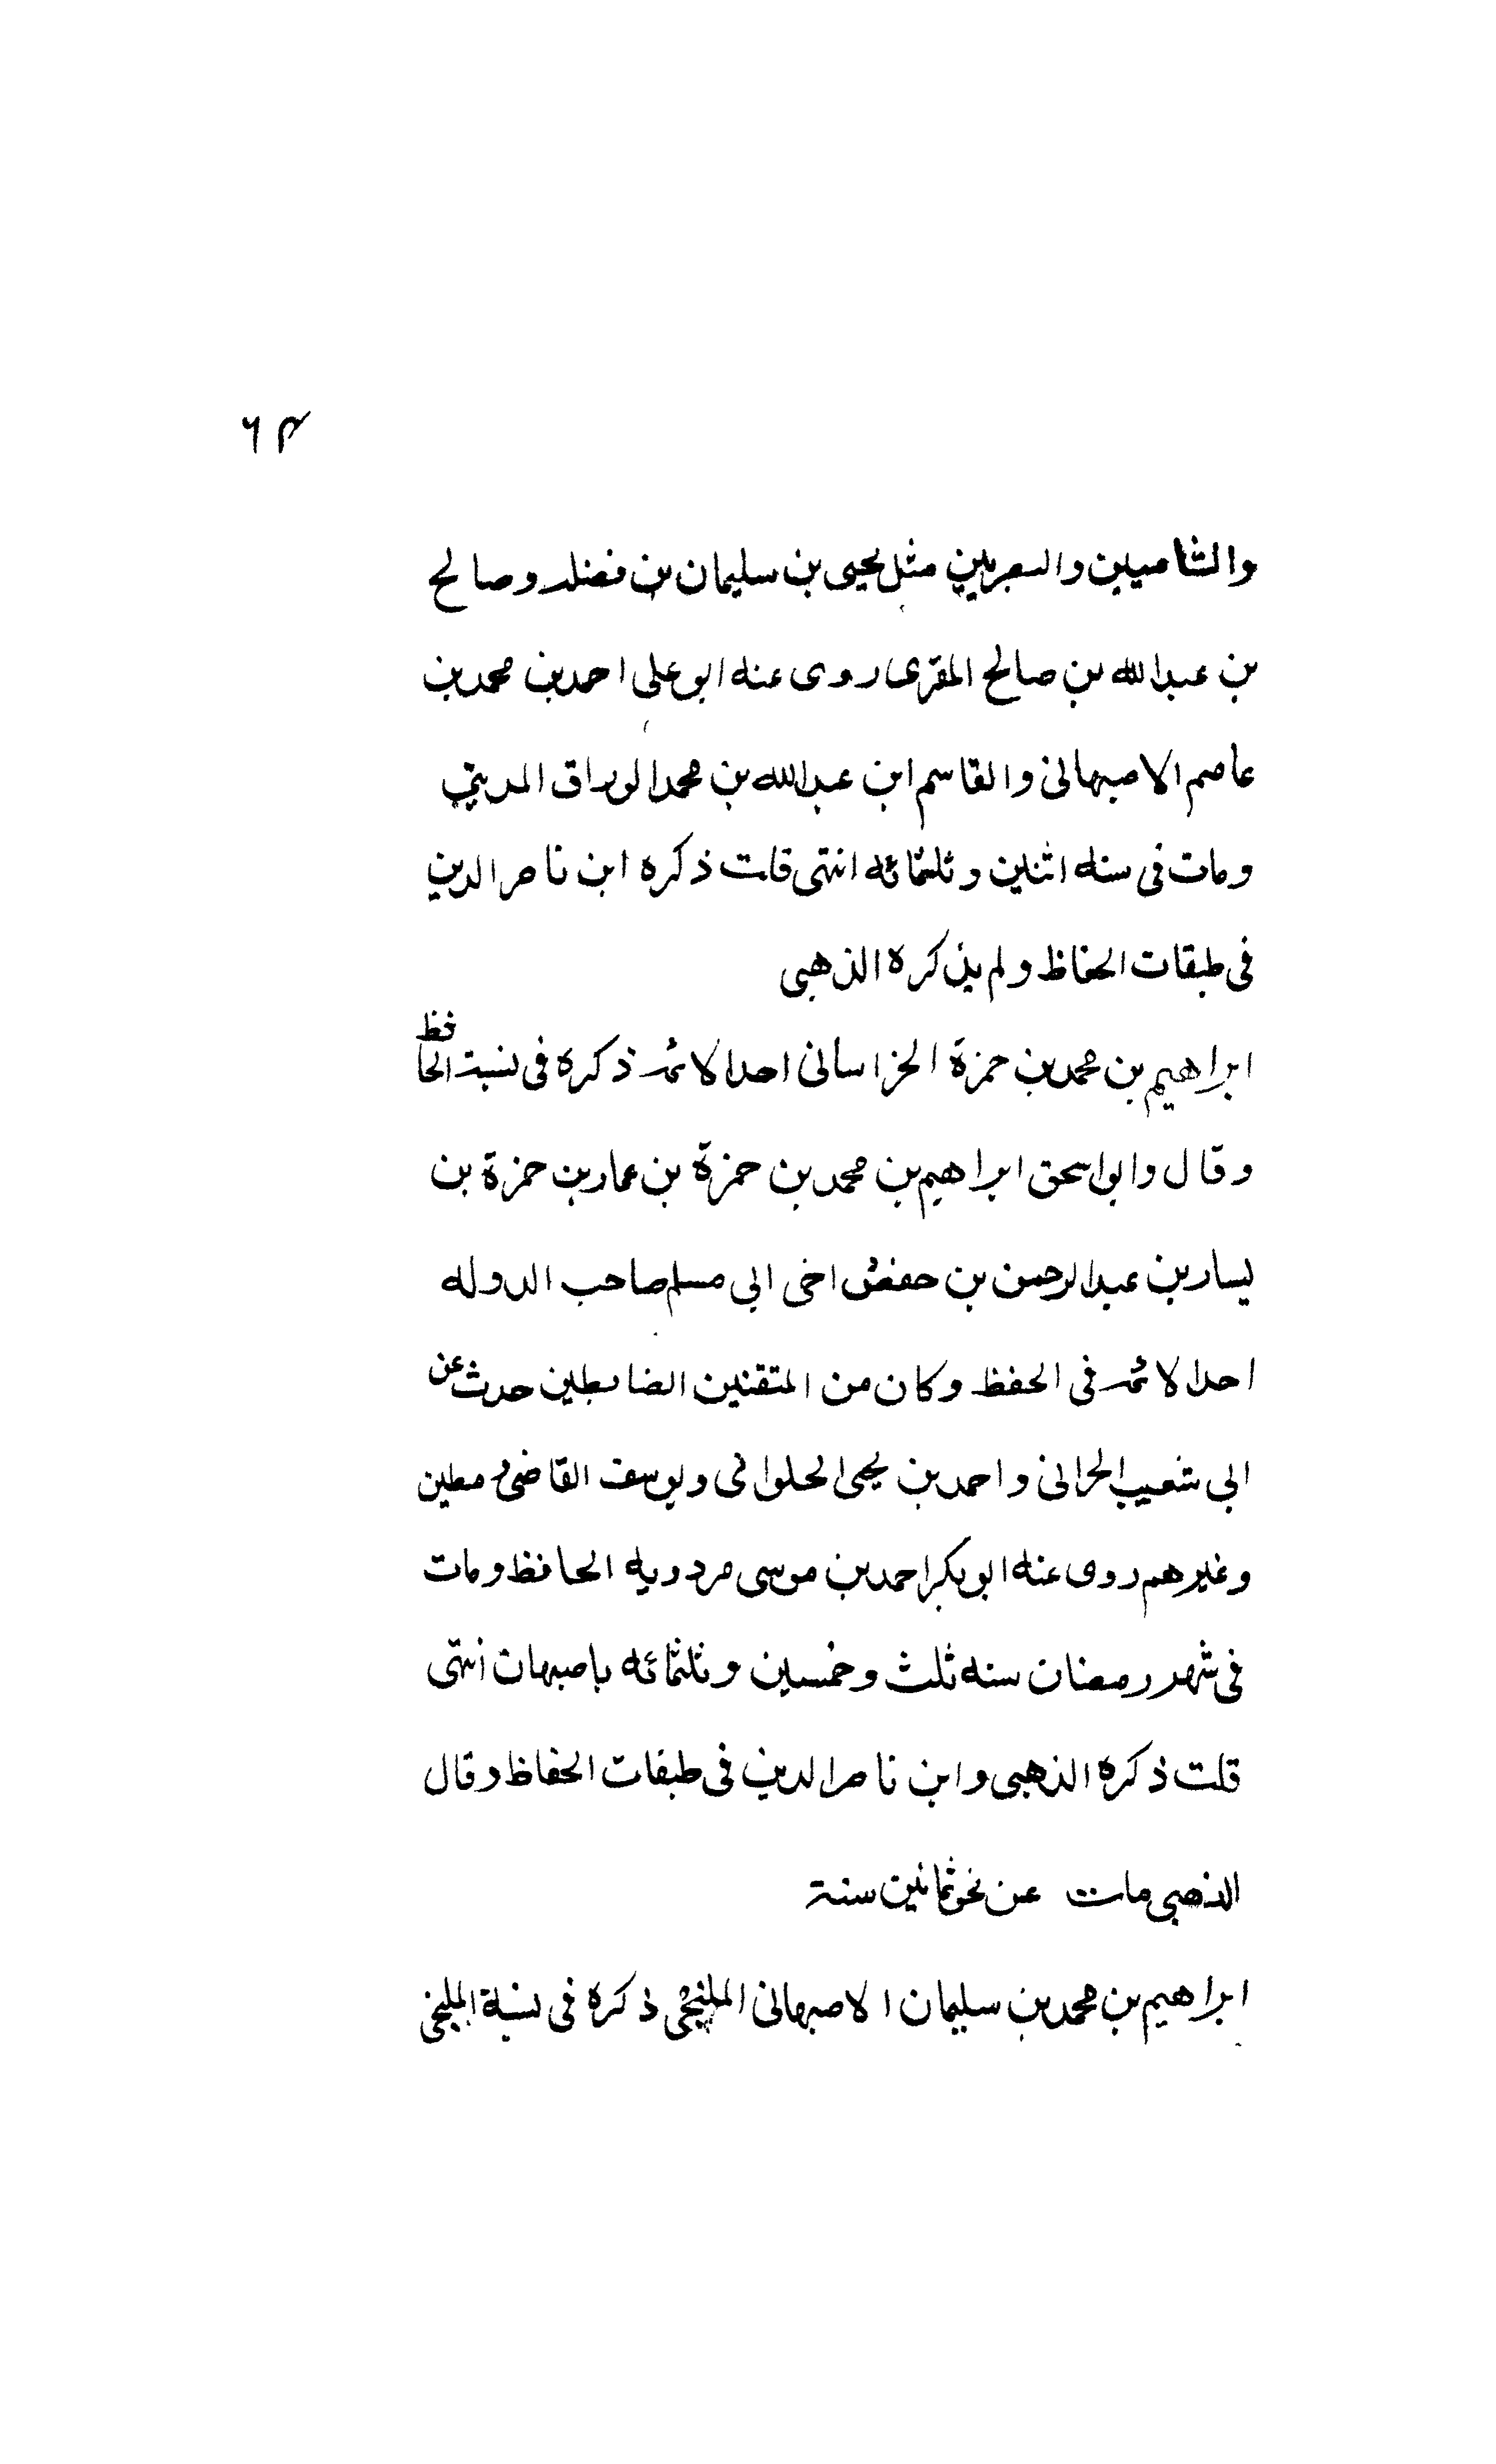 ۶۴
والشاميين والمصريين مثل يحيى بن سليمان بن فضله وصالح
بن عبد الله بن صالح المقرى روى عنه ابو على احمد بن محمد بن
عاصم الاصبهانى والقاسم ابن عبد الله بن محمد الوراق المدينى
ومات فى سنه اثنين وثلثمائه انتهى قلت ذكره ابن ناصر الدين
فى طبقات الحفاظ ولم يذكره الذهبى
ابراهيم بن محمد بن حمزة الخراسانى احد الائمه ذكره فى نسبة الحافظ
وقال وابو اسحق ابراهيم بن محمد بن حمزة بن عمار بن حمزة بن
يسار بن عبد الرحمن بن حفص اخى ابى مسلم صاحب الدوله
احد الائمه فى الحفظ وكان من المتقنين الضابطين حدث عن
ابى شعيب الحرانى و احمد بن يحيى الحلوانى ويوسف القاضى و مطين
وغيرهم روى عنه ابو بكر احمد بن موسى مردويه الحافظ ومات
فى شهر رمضان سنه ثلث وخمسين وثلثمائه باصبهان انتهى
قلت ذكره الذهبى وابن ناصر الدين فى طبقات الحفاظ وقال
الذهبى مات عن نحو ثمانين سنة
ابراهيم بن محمد بن سليمان الاصبهانى الملنجى ذكره فى نسبة الملنجى